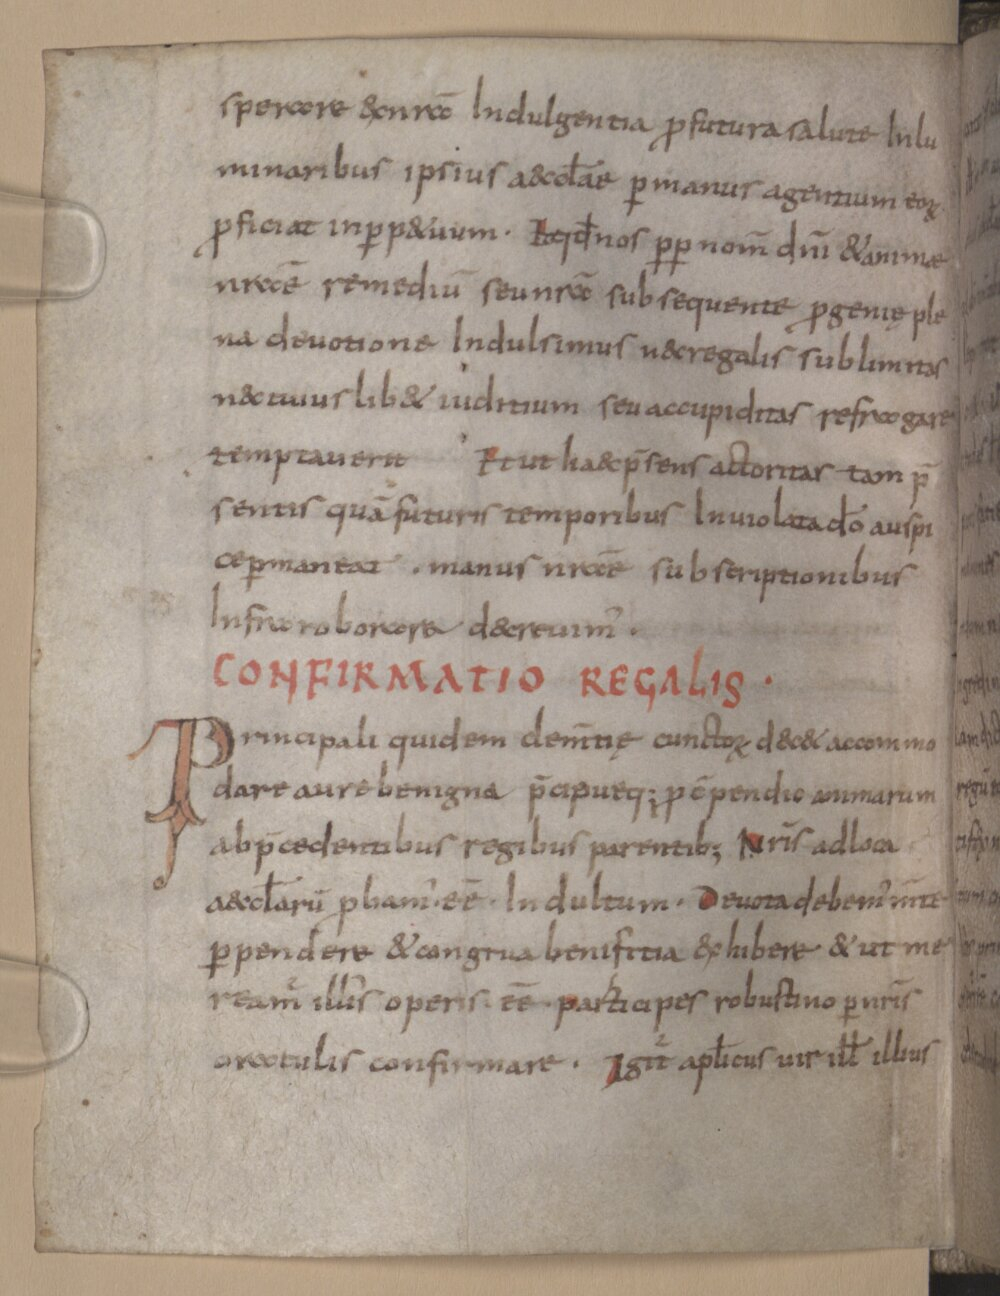 sperare exnrā Indulgentia ꝓfutura salute Inlu
minaribus ipsius aeccłae ꝑmanus agentium eoꝝ
ꝓficiat inꝑp&uum · Etqđ nos ꝑꝑ nom̄ dn̄i & animae
nr̄ae remediū seu nrā subsequente ꝓgenię ple
na deuotione Indulsimus necregalis sublimitas
neccuiuslib& iuditium seuaccupiditas refragare
temptauerit Et ut haecp̄sens actoritas tam p̄
sentis quāfuturis temporibus Inuiolata dō auspi
ceꝑmaneat · manus nr̄ae subscriptionibus
Infra roborare decreuim᾽ ·
CONFIRMATIO REGALIS ·
Principali quidem clem̄tię cunctoꝝ dec& accommo
dare aure benigna p̄cipueq; ꝓ cōpendio animarum
abp̄cedentibus regibus parentib; Nr̄is adloca
aeccłarū ꝓbam᾽ · eē · Indultum · Deuota debem᾽ m̄te
ꝑpendere & congrua benifitia exhibere & ut me
ream᾽ illi᾽s operis · eē · participes robustino ꝑnr̄is
oraculis confirmare · Igit᾽ apłicus uir iłł illius